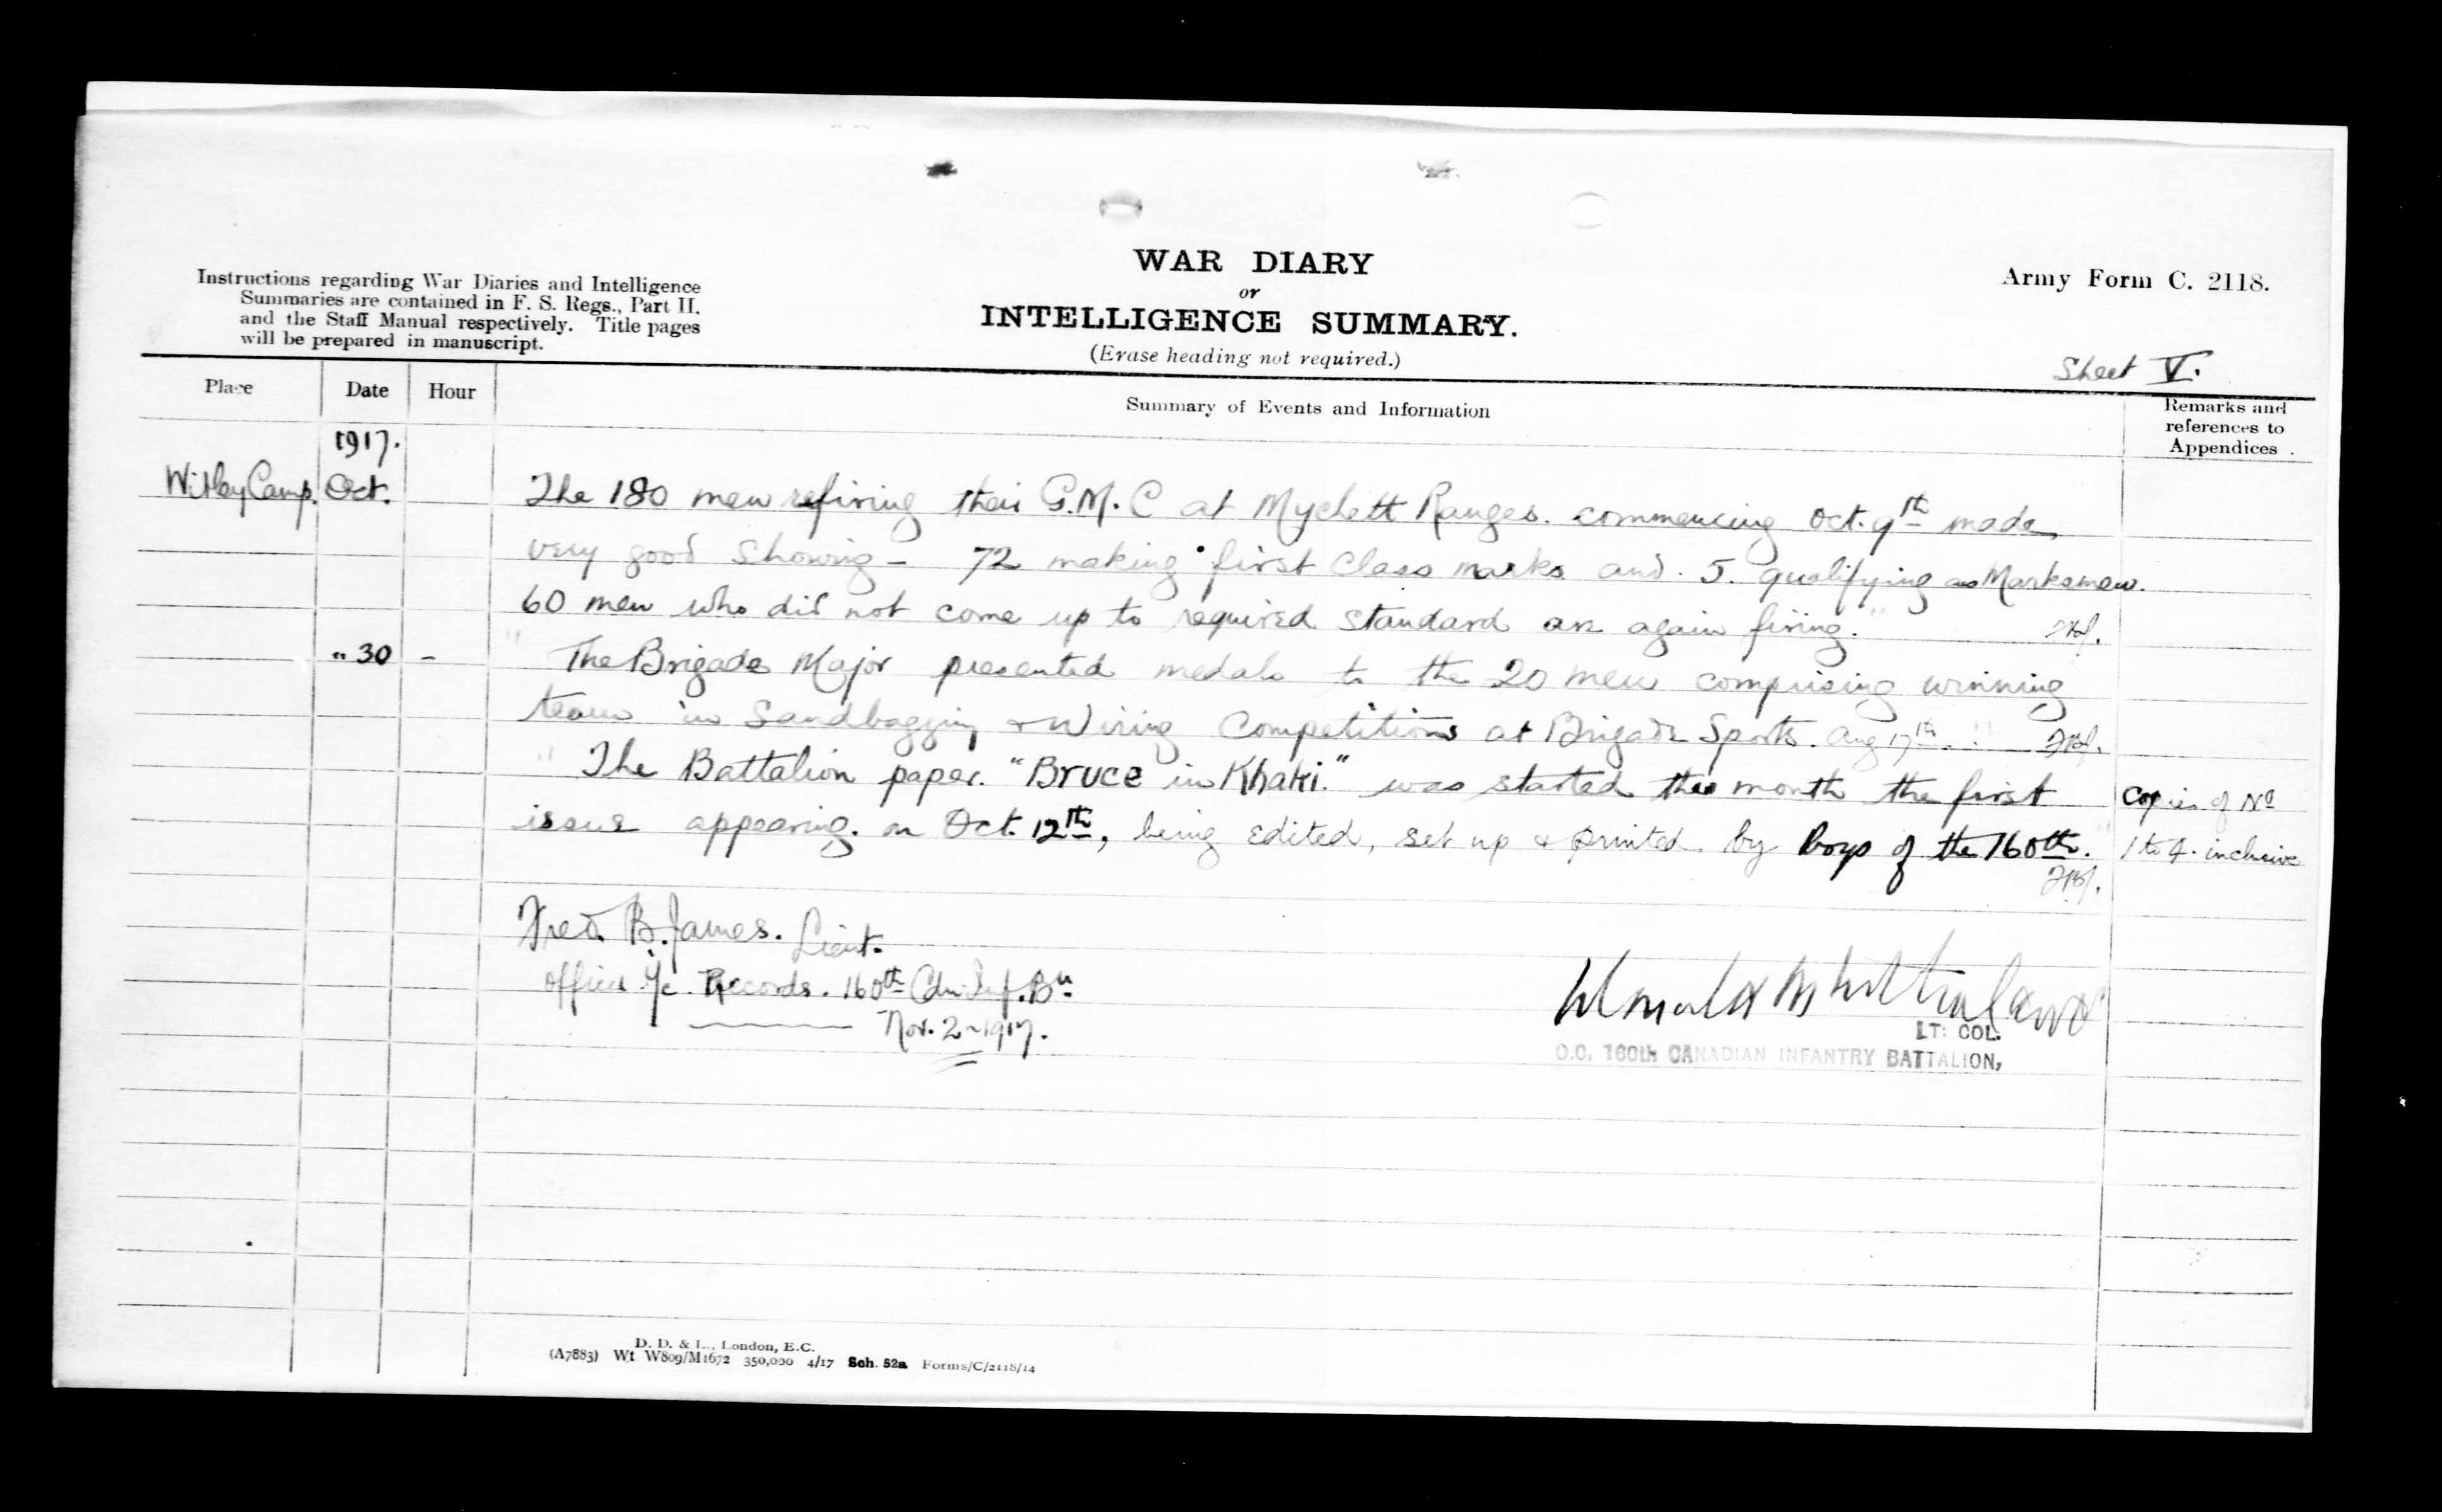 WAR DIARY
or
INTELLIGENCE SUMMARY.
(Erase heading not required.)
Instructions regarding War Diaries and Intelligence
Summaries are contained in F. S. Regs., Part II.
and the Staff Manual respectively. Title pages
will be prepared in manuscript.
Army Form C. 2118.
Sheet V.
Place Date Hour Summary of Events and Information Remarks and references to Appendices
1917.
Witley Camp. Oct. The 180 men refiring their G.M.C at Mychett Ranges. commencing Oct. 9th made
very good showing - 72 making first Class marks and. 5. qualifying as Marksmen.
60 men who did not come up to required standard are again firing." FBJ.
" 30 - "The Brigade Major presented medals to the 20 men comprising winning
team in Sandbagging & Wiring Competitions at Brigade Sports. Aug 17th." FBJ.
" The Battalion paper. "Bruce in Khaki." was started this month the first Copies of No
issue appearing. on Oct. 12th, being edited, set up & printed by boys of the 160th." 1 to 4. inclusive
FBJ.
Fred. B. James. Lieut.
Officer i/c. Records. 160th Cdn. Inf. Bn
Nov. 2 - 1917.
LT: COL.
O.C. 160th CANADIAN INFANTRY BATTALION,
D. D. & L., London, E.C.
(A7883) Wt W809/M1672 350,000 4/17 Sch. 52a Forms/C/2118/14